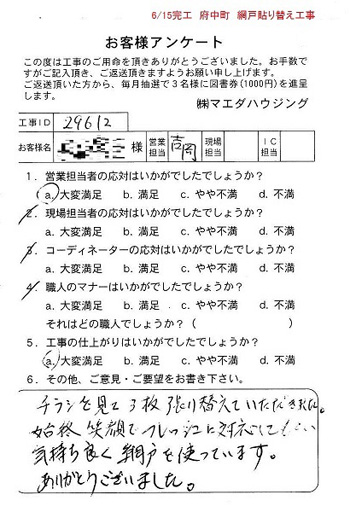 6/15完工 府中町 網戸貼り替え工事
お客様アンケート
この度は工事のご用命を頂きありがとうございました。お手数で
すがご記入頂き、ご返送頂きますようお願い申し上げます。
ご返送頂いた方から、毎月抽選で３名様に図書券(1000円)を進呈
します。
㈱マエダハウジング
工事ID 29612
お客様名 様 営業担当 吉岡 現場担当 IC担当
1．営業担当者の応対はいかがでしたでしょうか？
a.大変満足 b.満足 c.やや不満 d.不満
2．現場担当者の応対はいかがでしたでしょうか？
a.大変満足 b.満足 c.やや不満 d.不満
3．コーディネーターの応対はいかがでしたでしょうか？
a.大変満足 b.満足 c.やや不満 d.不満
4．職人のマナーはいかがでしたでしょうか？
a.大変満足 b.満足 c.やや不満 d.不満
それはどの職人でしょうか？（ ）
5．工事の仕上がりはいかがでしたでしょうか？
a.大変満足 b.満足 c.やや不満 d.不満
6．その他、ご意見・ご要望をお書き下さい。
チラシを見て3枚張り替えていただきました。
始終笑顔でフレッシュに対応してもらい
気持ち良く網戸を使っています。
ありがとうございました。